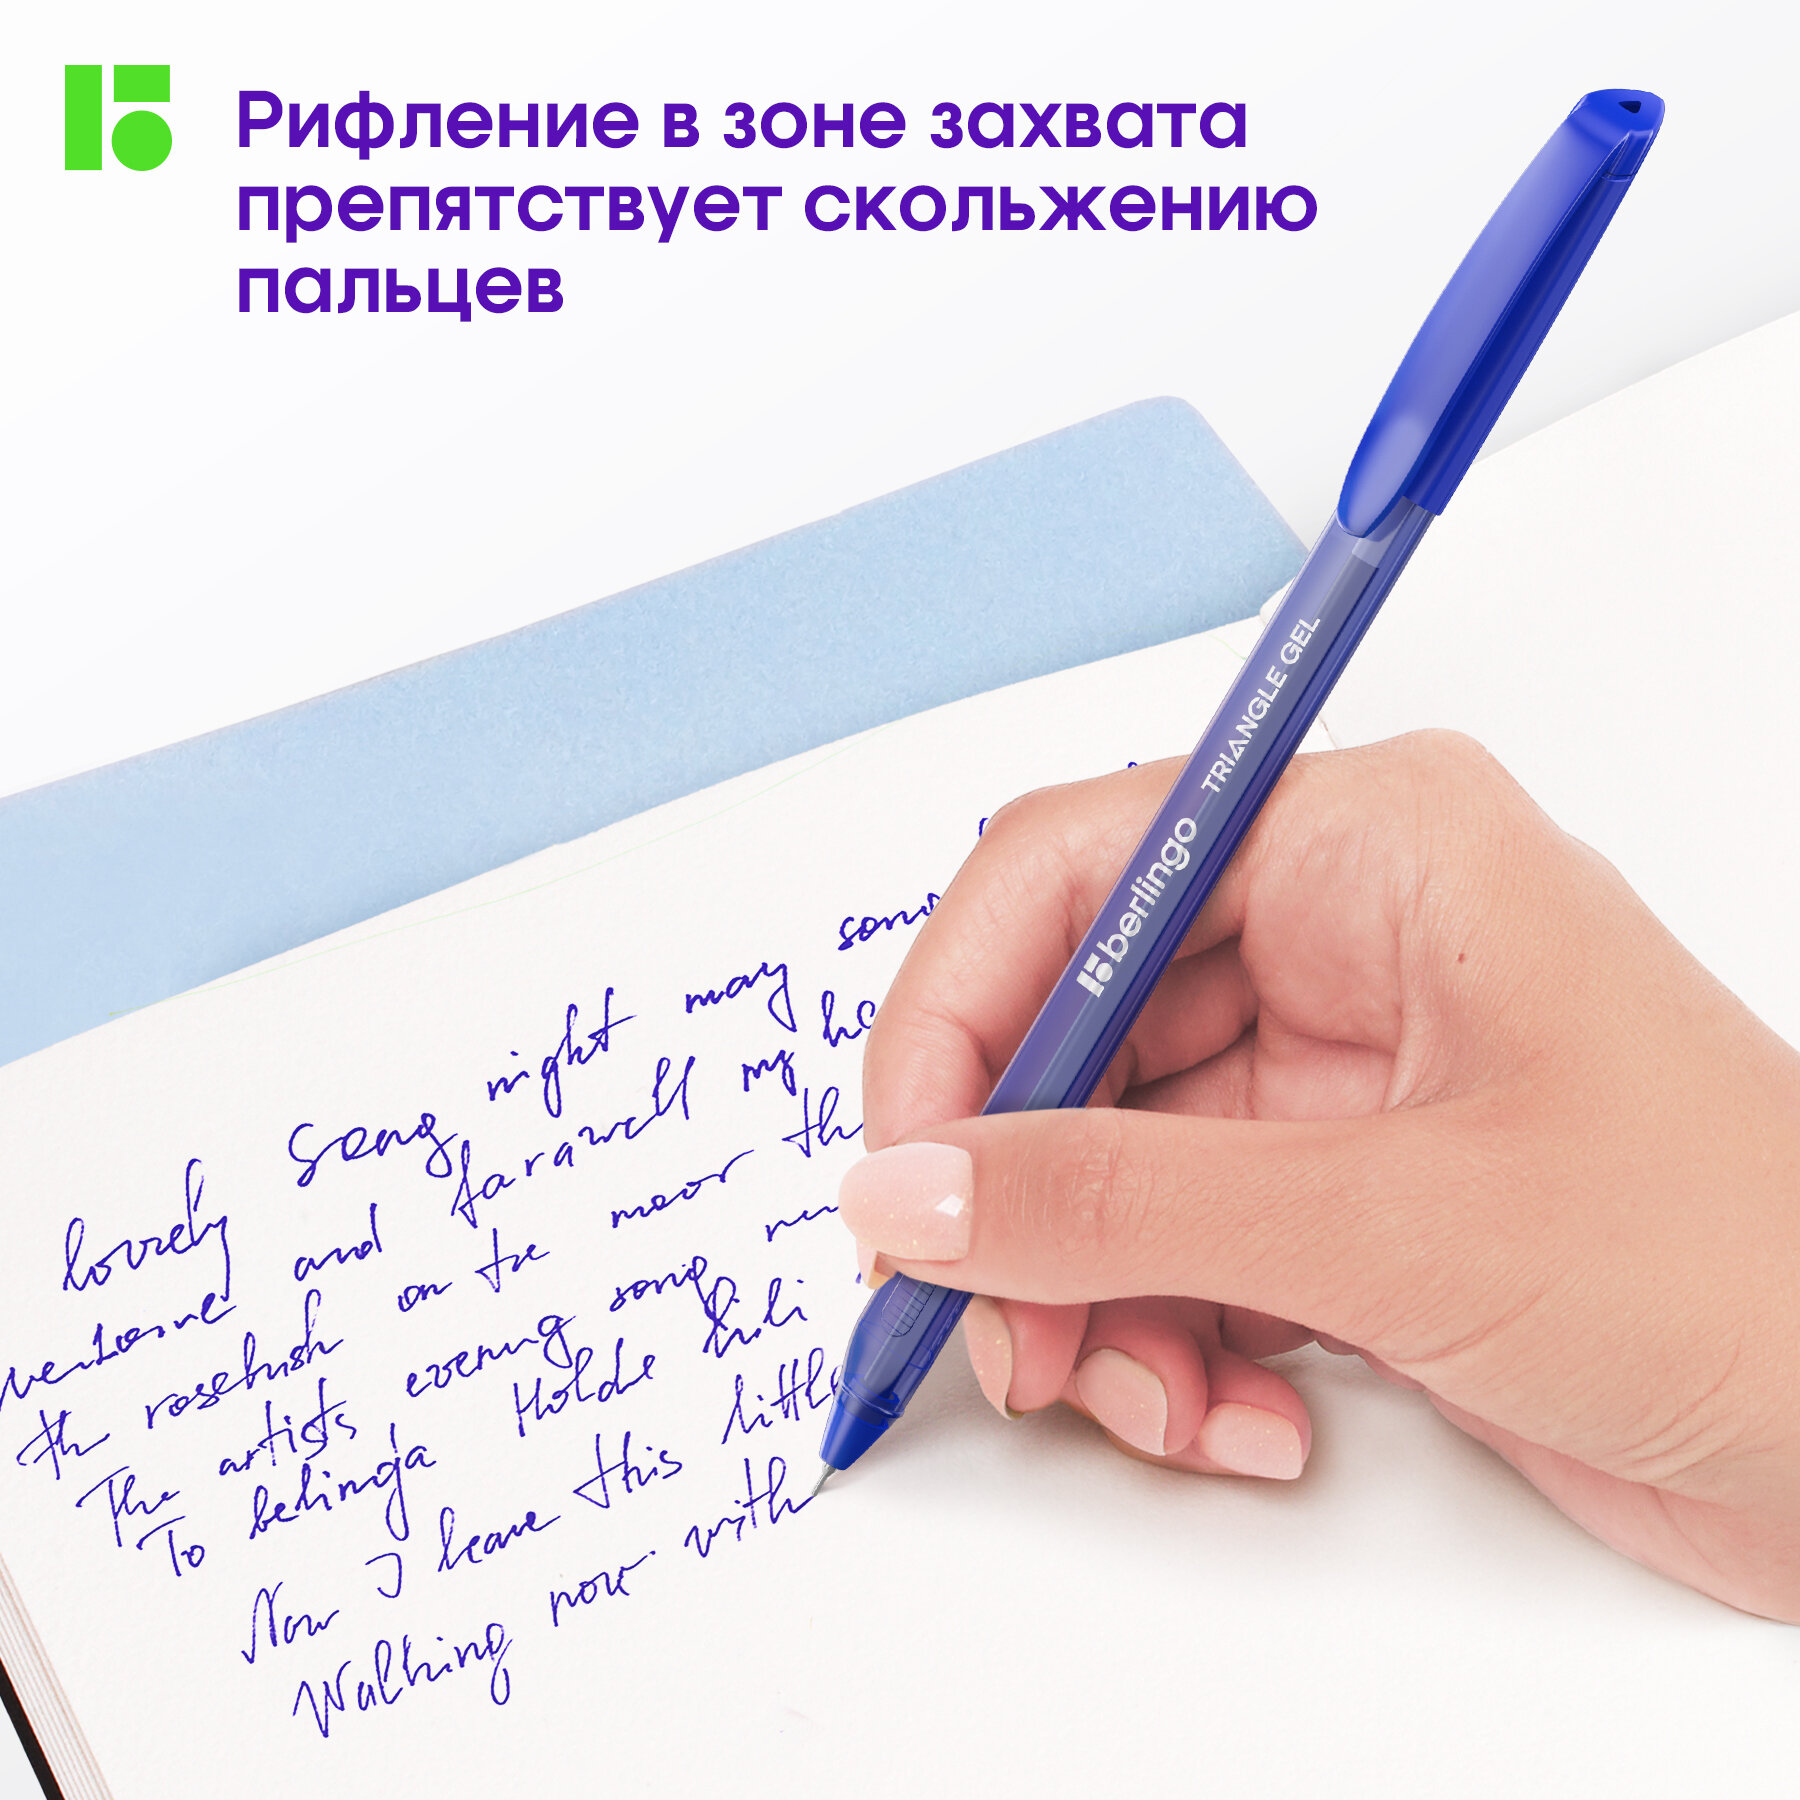 Рифление в зоне захвата
препятствует скольжению
пальцев
berlingo TRIANGLE GEL
lovely song night may song
and farawell my
the rosebush on the moor th
The artists evening song
To belinga Holde
Now I leave this little
Walking now with